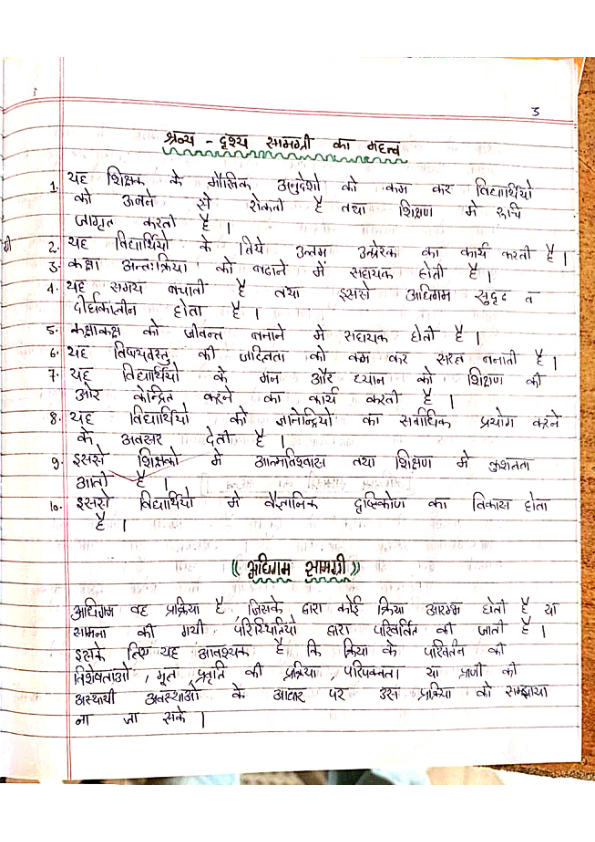 3
श्रव्य - दृश्य सामग्री का महत्व
1. यह शिक्षक के मौखिक अनुदेशो को कम कर विद्यार्थियो
को ऊबने से रोकती है तथा शिक्षण मे रूचि
जागृत करती है।
2. यह विद्यार्थियो के लिये उत्तम उत्प्रेरक का कार्य करती है।
3. कक्षा अन्तःक्रिया को बढाने में सहायक होती है।
4. यह समय बचाती है तथा इससे अधिगम सुदृढ व
दीर्घकालीन होता है।
5. कक्षाकक्ष को जीवन्त बनाने मे सहायक होती है।
6. यह विषयवस्तु की जटिलता को कम कर सरल बनाती है।
7. यह विद्यार्थियो के मन और ध्यान को शिक्षण की
ओर केन्द्रित करने का कार्य करती है।
8. यह विद्यार्थियो को ज्ञानेन्द्रियो का सर्वाधिक प्रयोग करने
के अवसर देती है।
9. इससे शिक्षको मे आत्मविश्वास तथा शिक्षण मे कुशलता
आती है।
10. इससे विद्यार्थियो मे वैज्ञानिक दृष्टिकोण का विकास होता
है।
(( अधिगम सामग्री ))
अधिगम वह प्रक्रिया है, जिसके द्वारा कोई क्रिया आरम्भ होती है या
सामना की गयी परिस्थितियो द्वारा परिवर्तित की जाती है।
इसके लिए यह आवश्यक है कि क्रिया के परिवर्तन की
विशेषताओं, मूल प्रवृति की प्रक्रिया, परिपक्वता या प्राणी की
अस्थायी अवस्थाओ के आधार पर उस प्रक्रिया को समझाया
ना जा सके।